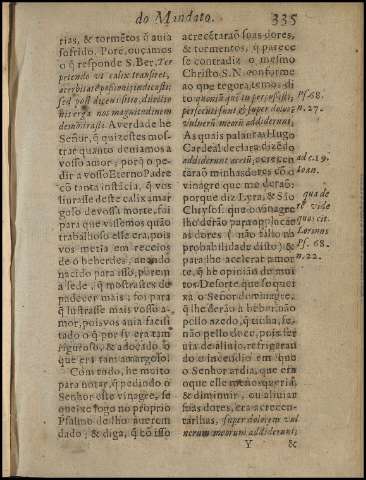 do Mandato. 335
rias, & tormẽtos q̃ auia
sofrido. Porẽ, ouçamos
o q̃ responde S. Ber. Ter
petendo vt calix transiret,
acerbitatẽ passionis indicasti:
sed post ducens sitio, dilectio
nis ergo nos magnitudinem
demõstrasti. A verdade he
Señor, q̃ quizestes mos-
trar quanto deuiamos a
vosso amor; porq̃ o pe-
dir a vosso Eterno Padre
cõ tanta instãcia, q̃ vos
liurasse deste calix amar
goso de vossa morte, foi
para que vissemos quão
trabalhoso elle era, pois
vos metia em receios
de o beberdes, auendo
nacido para isso, porem
a sede, q̃ mostrastes de
padecer mais, foi para
q̃ lustrasse mais vosso a-
mor, pois vos auia facili
tado o q̃ por si era tam
riguroso, & adoçado o
que era tam amargoso.
Com tudo, he muito
para notar, q̃ pedindo o
Senhor este vinagre, se
queixe logo no proprio
Psalmo de lho auerem
dado; & diga, q̃ cõ isso
acrecẽtaraõ suas dores,
& tormentos, q̃ parece
se contradiz o mesmo
Christo S. N. conforme
ao que tegora temos di
to quoniã quẽ tu percussisti,
persecuti sunt & super dolorẽ
vulnerũ meorũ addiderunt;
As quais palauras Hugo
Cardeal declara dizẽdo
addiderunt acetũ, acrecen
taraõ minhas dores cõ o
vinagre que me deraõ:
porque diz Lyra, & Saõ
Chrysost. que o vinagre
lho deraõ para apressar
as dores (& não falto na
probabilidade disto) &
para lhe acelerar amor
te, q̃ he opinião de mui
tos. De sorte que se quei
xa o Senhor do vinagre,
q̃ lhe deraõ a beber, naõ
pello azedo, q̃ tinha, se-
naõ pello doce, pois ser
uia de aliuio, refrigeran
do e incendio em que
o Senhor ardia, que era
o que elle menos queria,
& diminuir, ou aliuiar
suas dores, era acrecen-
tarlhas, super dolorem vul
nerum meorum addiderunt;
Y &
Ps. 68.
n. 27.
ad c. 19.
Ioan.
qua de
re vide
quos cit.
Lorinus
Ps. 68.
n. 22.